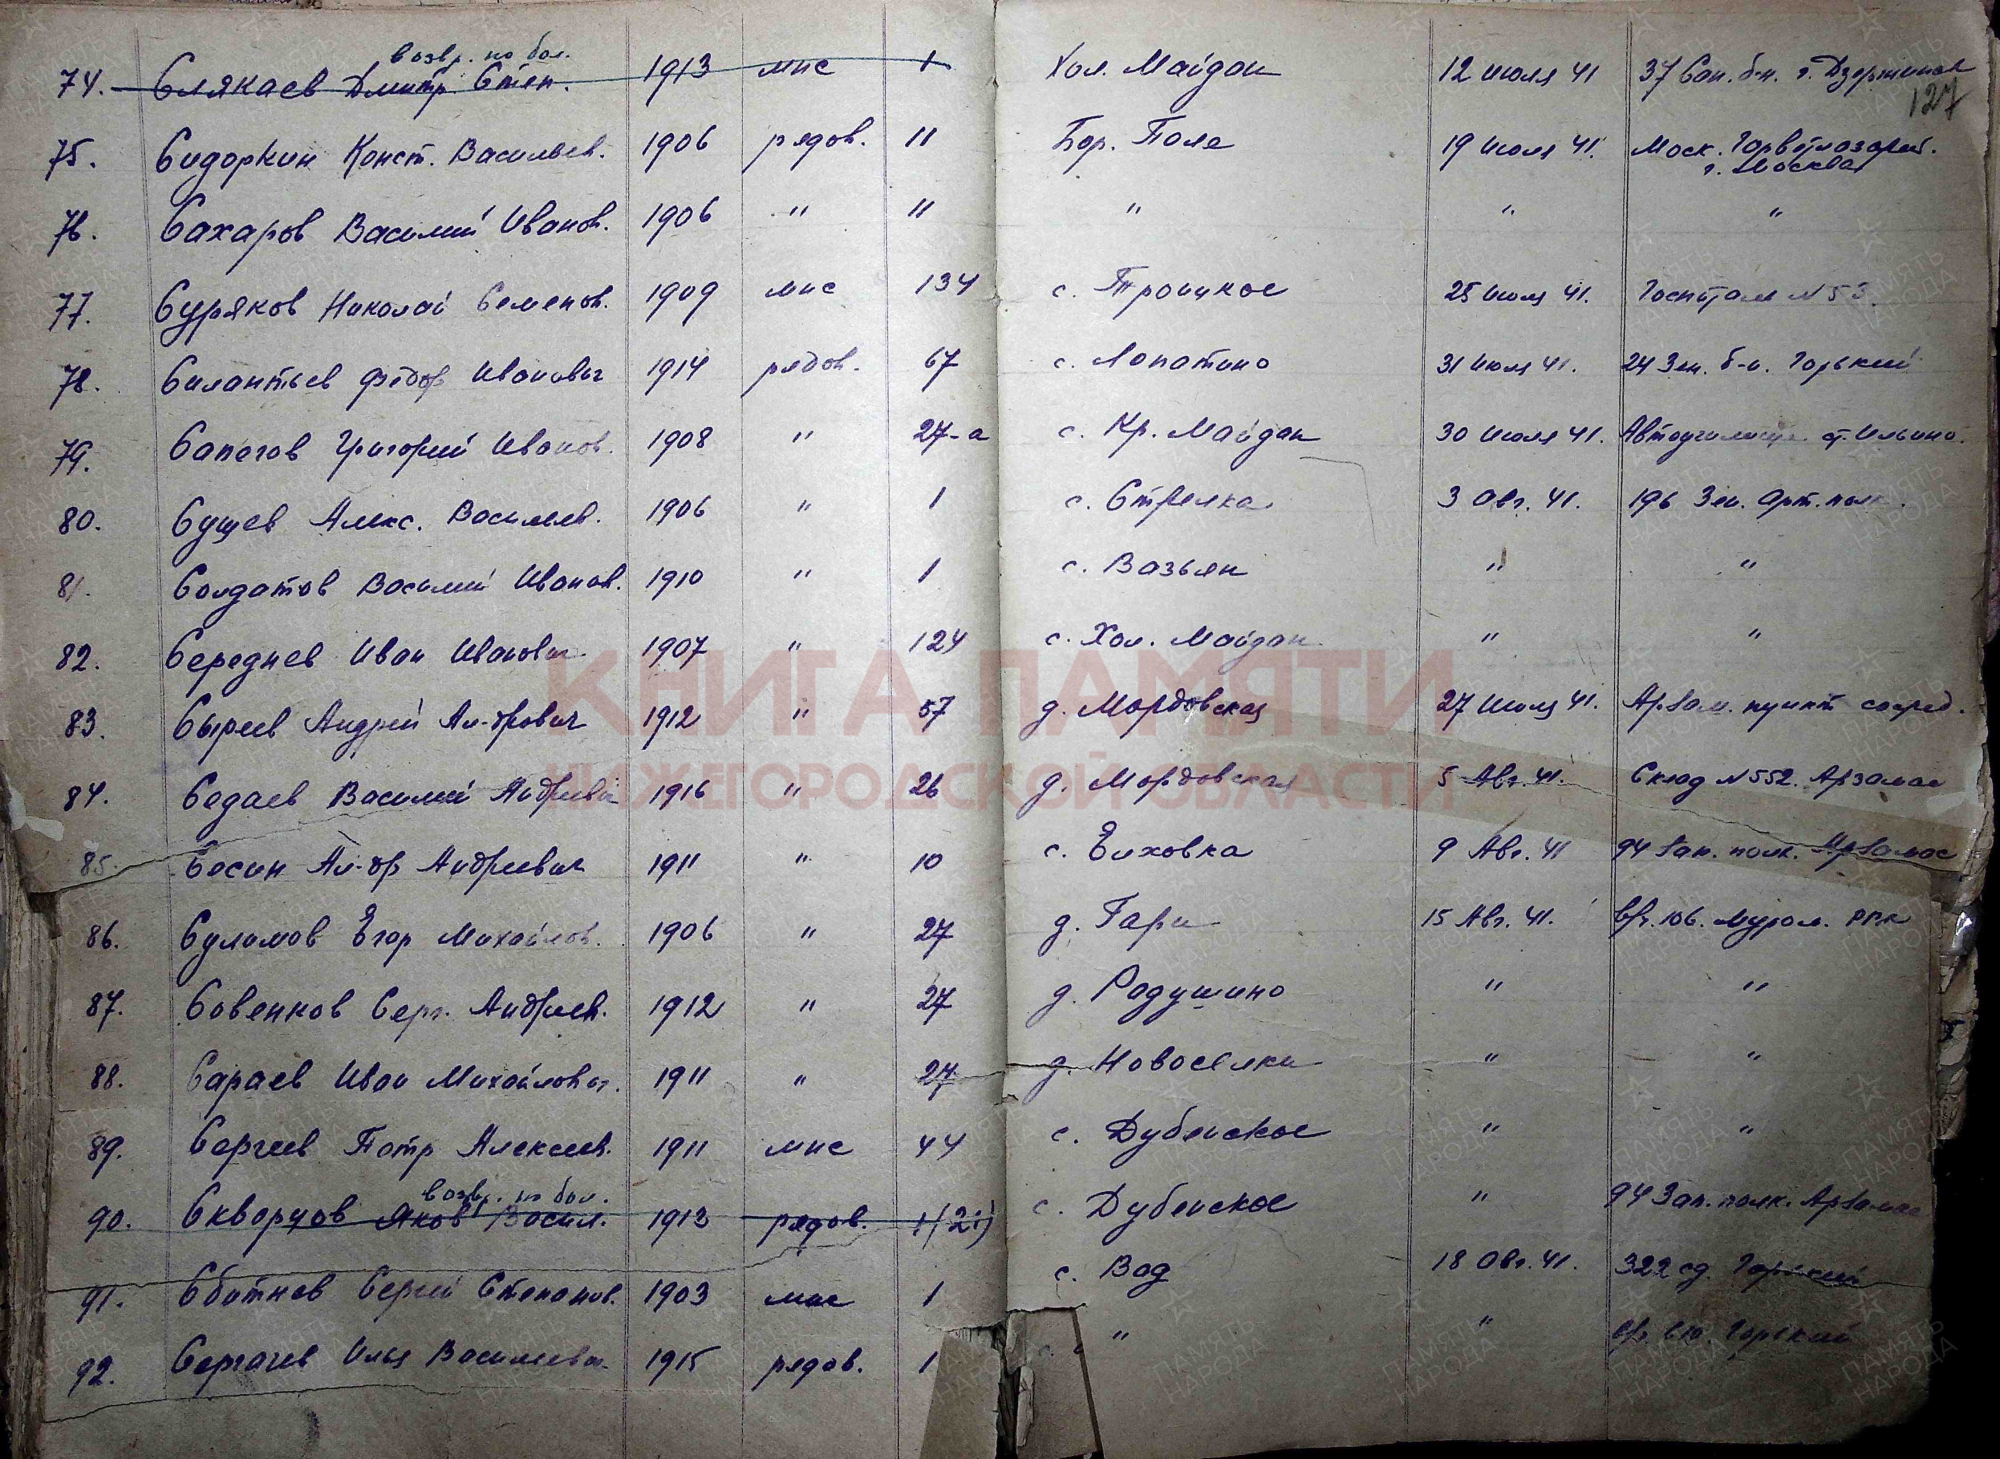 возвр. по бол.
74. Слякаев Дмитр Степ. 1913 мнс 1 Хол. Майдан 12 июля 41 37 Сап. б-н. г. Дзержинск
127
75. Сидоркин Конст. Васильев. 1906 рядов. 11 Бор. Поле 19 июля 41. Моск. Горветлазарет.
г. Москва
76. Сахаров Василий Иванов. 1906 " 11 " " "
77. Суряков Николай Семенов. 1909 мнс 134 с. Троицкое 25 июля 41. Госпиталь N 53.
78. Силантьев Федор Иванович 1914 рядов. 67 с. Лопатино 31 июля 41. 24 Зен. б-н. Горький
79. Сапогов Григорий Иванов. 1908 " 27-а с. Кр. Майдан 30 июля 41. Автоучилище ст. Ильино.
80. Сущев Алекс. Васильев. 1906 " 1 с. Стрелка 3 Авг. 41. 196 Зен. Арт. полк.
81. Солдатов Василий Иванов. 1910 " 1 с. Вазьян " "
82. Середнев Иван Иванович 1907 " 124 с. Хол. Майдан " "
83. Сыреев Андрей Ал-дрович 1912 " 57 д. Мордовская 27 июля 41. Арзам. пункт сосред.
84. Седаев Василий Андреевич 1916 " 26 д. Мордовская 5 Авг. 41. Склад N 552. Арзамас
85. Сесин Ал-др Андреевич 1911 " 10 с. Елховка 9 Авг. 41 94 Зап. полк. Арзамас
86. Суламов Егор Михайлов. 1906 " 27 д. Гари 15 Авг. 41. Муром. РВК
87. Совенков Серг. Андреев. 1912 " 27 д. Радушино " "
88. Сараев Иван Михайлович. 1911 " 27 д. Новоселки " "
89. Сергеев Петр Алексеев. 1911 мнс 44 с. Дубенское " "
возвр. по бол.
90. Скворцов Яков Васил. 1913 рядов. 1 (21) с. Дубенское " 94 Зап. полк. Арзамас
91. Сбитнев Сергей Степанов. 1903 мнс 1 с. Вад 18 Авг. 41. 322 сд. Горький
92. Сергачев Илья Васильевич 1915 рядов. 1 с. " " Горький
КНИГА ПАМЯТИ
НИЖЕГОРОДСКОЙ ОБЛАСТИ